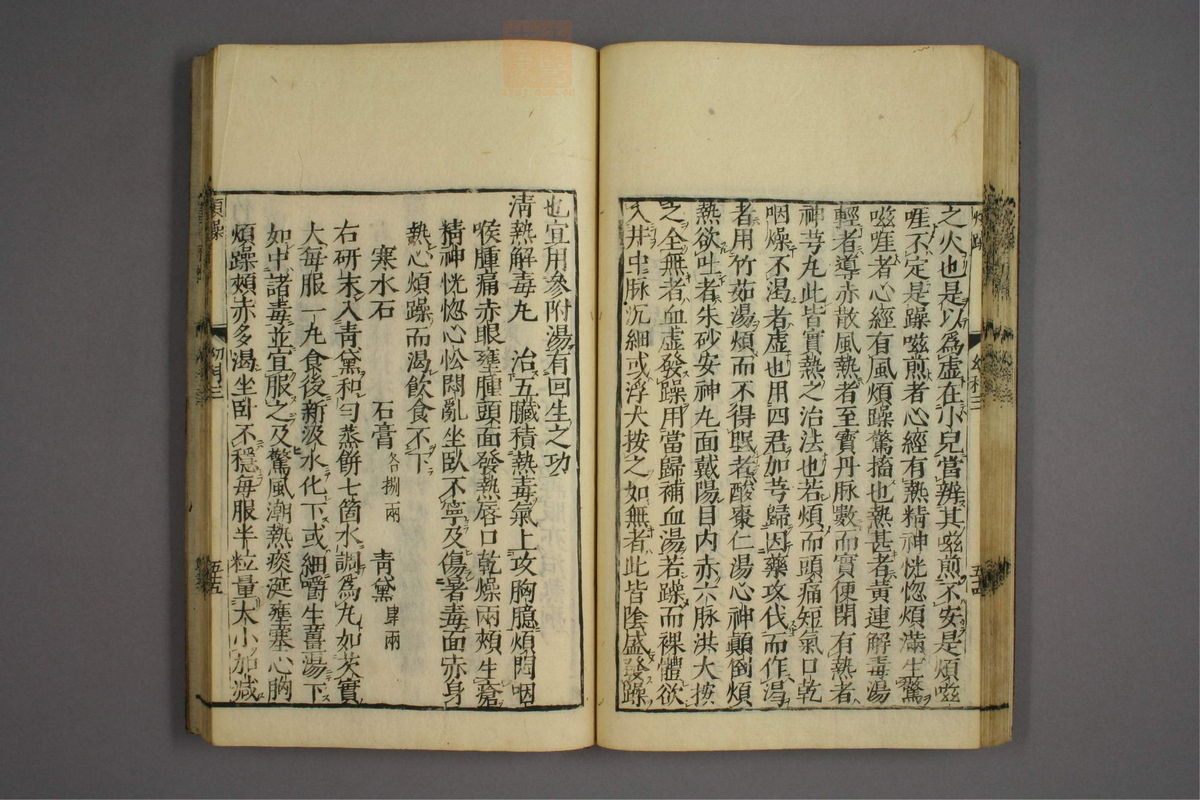 之火也是以爲虛在小兒當辨其嗞煎不安是煩嗞
啀不定是躁嗞煎者心經有熱精神恍惚煩滿生驚
嗞啀者心經有風煩躁驚搐也熱甚者黃連解毒湯
輕者導赤散風熱者至寶丹脉數而實便閉有熱者
神芎丸此皆實熱之治法也若煩而頭痛短氣口乾
咽燥不渴者虛也用四君加芎歸因藥攻伐而作渴
者用竹茹湯煩而不得眠者酸棗仁湯心神顛倒煩
熱欲吐者朱砂安神丸面戴陽目内赤六脉洪大按
之全無者血虛發躁用當歸補血湯若躁而裸體欲
入井中脉沉細或浮大按之如無者此皆陰盛發躁
也宜用參附湯有回生之功
清熱解毒丸　治五臟積熱毒氣上攻胸膈煩悶咽
喉腫痛赤眼壅腫頭面發熱唇口乾燥兩頰生瘡
精神恍惚心忪悶亂坐臥不寧及傷暑毒面赤身
熱心煩躁而渴飲食不下
寒水石　石膏各捌兩　靑黛肆兩
右研末入靑黛和勻蒸餅七箇水調爲丸如芡實
大每服一丸食後新汲水化下或細嚼生薑湯下
如中諸毒並宜服之及驚風潮熱痰涎壅塞心胸
煩躁頰赤多渴坐臥不穩每服半粒量大小加減